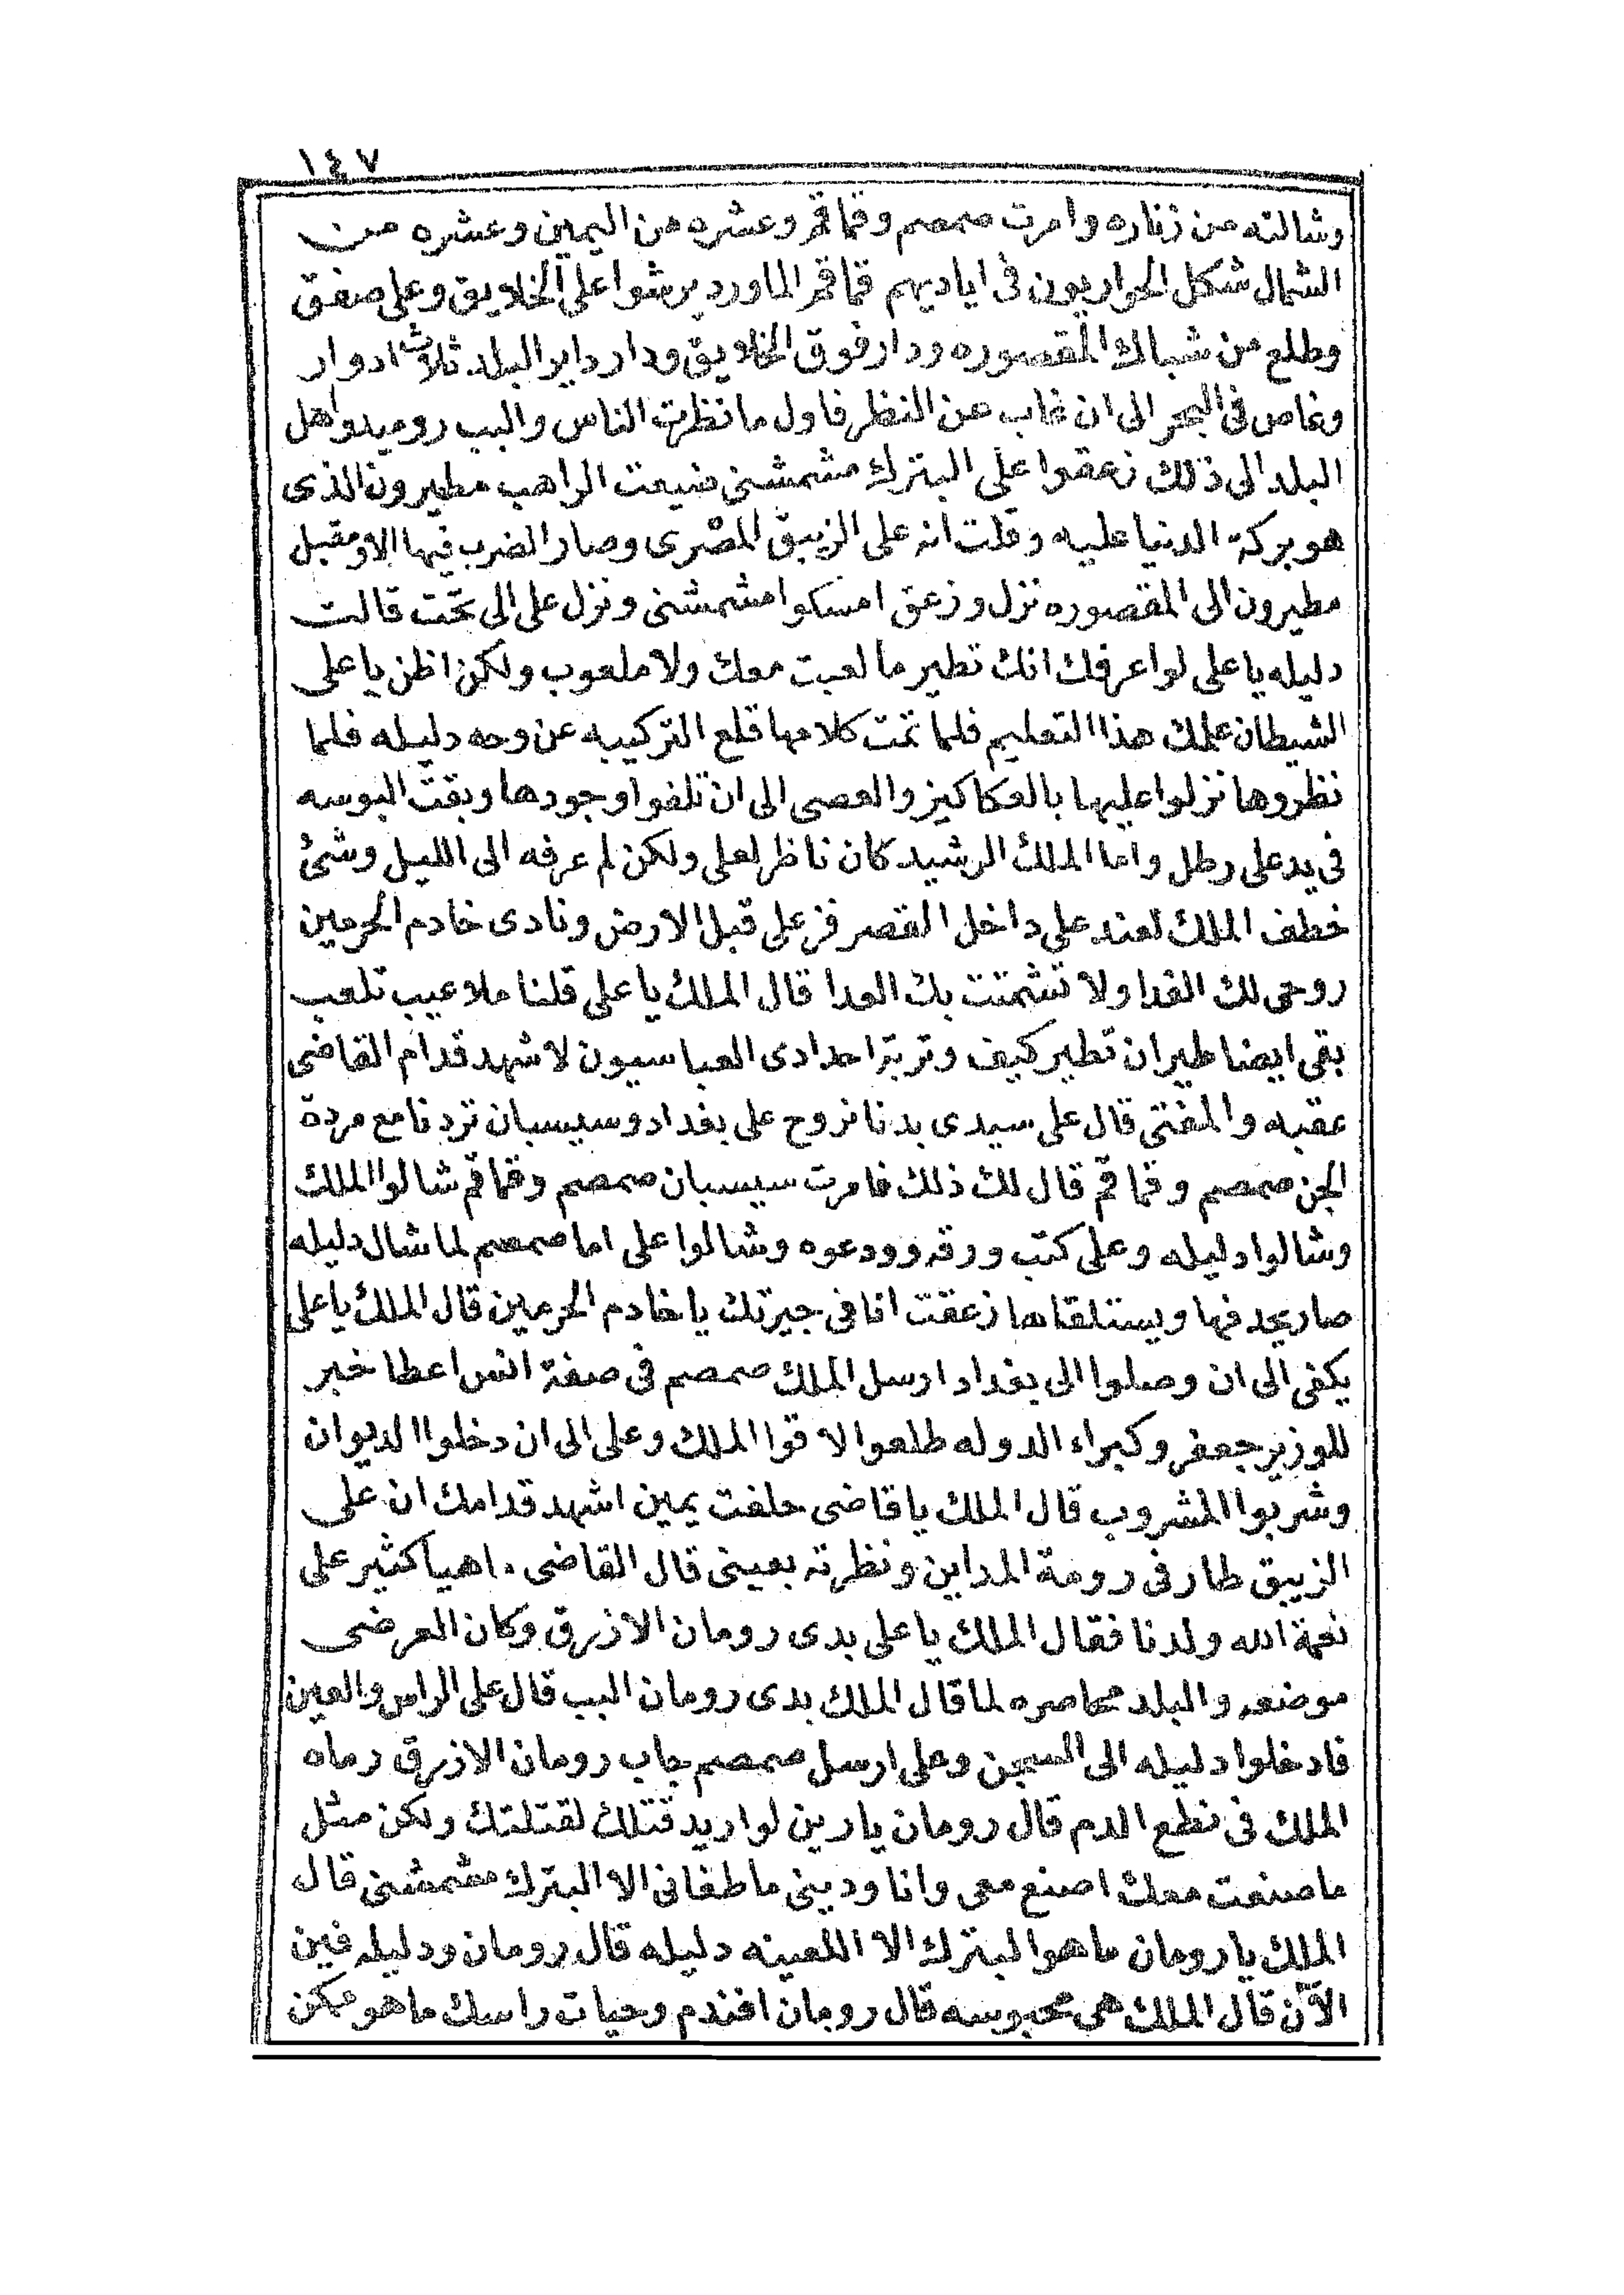 ١٤٧
وشالته من زناره وامرت صمصم وقماقم وعشره من اليمين وعشره من
الشمال شكل الحواريون فى اياديهم قماقم الماورد يرشوا على الخلايق وعلى صفق
وطلع من شباك المقصوره ودار فوق الخلايق ودار داير البلد ثلاث ادوار
وغاص فى البحر الى ان غاب عن النظر فاول ما نظرت الناس والبب روميدو اهل
البلد الى ذلك زعقوا على البترك مشمشنى ضيعت الراهب مطيرون الذى
هو بركة الدنيا عليه وقلت انه على الزيبق المصرى وصار الضرب فيها الا ومقبل
مطيرون الى المقصوره نزل وزعق امسكوا مشمشنى ونزل على الى تحت قالت
دليله يا على لو اعرفك انك تطير ما لعبت معك ولا ملعوب ولكن اظن يا على
الشيطان علمك هذا التعليم فلما تمت كلامها قلع التركيبه عن وجه دليله فلما
نظروها نزلوا عليها بالعكاكيز والعصى الى ان تلفوا وجودها وبقت البوسه
فى يد على رطل واما الملك الرشيد كان ناظر لعلى ولكن لم عرفه الى الليل وشئ
خطف الملك لعند على داخل القصر فز على قبل الارض ونادى خادم الحرمين
روحى لك الفدا ولا تشمتت بك العدا قال الملك يا على قلنا ملاعيب تلعب
بقى ايضا طيران تطير كيف وتربة اجدادى العباسيون لاشهد قدام القاضى
عقبه والمفتى قال على سيدى بدنا نروح على بغداد وسيسبان تردنا مع مردة
الجن صمصم وقماقم قال لك ذلك فامرت سيسبان صمصم وقماقم شالوا الملك
وشالوا دليله وعلى كتب ورقه وودعوه وشالوا على اما صمصم لما شال دليله
صار يحدفها ويستلقاها زعقت انا فى جيرتك يا خادم الحرمين قال الملك يا على
يكفى الى ان وصلوا الى بغداد ارسل الملك صمصم فى صفة انس اعطا خبر
للوزير جعفر وكبراء الدوله طلعوا لاقوا الملك وعلى الى ان دخلوا الديوان
وشربوا المشروب قال الملك يا قاضى حلفت يمين اشهد قدامك ان على
الزيبق طار فى رومة المداين ونظرته بعينى قال القاضى . اهيا كثير على
نعمة الله ولدنا فقال الملك يا على بدى رومان الازرق وكان العرضى
موضعه والبلد محاصره لما قال الملك بدى رومان البب قال على الراس والعين
فادخلوا دليله الى السجن وعلى ارسل صمصم جاب رومان الازرق رماه
الملك فى نطع الدم قال رومان يا رين لو اريد قتلك لقتلتك ولكن مثل
ما صنعت معك اصنع معى وانا ودينى ما طغانى الا البترك مشمشنى قال
الملك يا رومان ما هو البترك الا اللعينه دليله قال رومان ودليله فين
الآن قال الملك هى محبوسه قال رومان افندم وحيات راسك ما هو ممكن